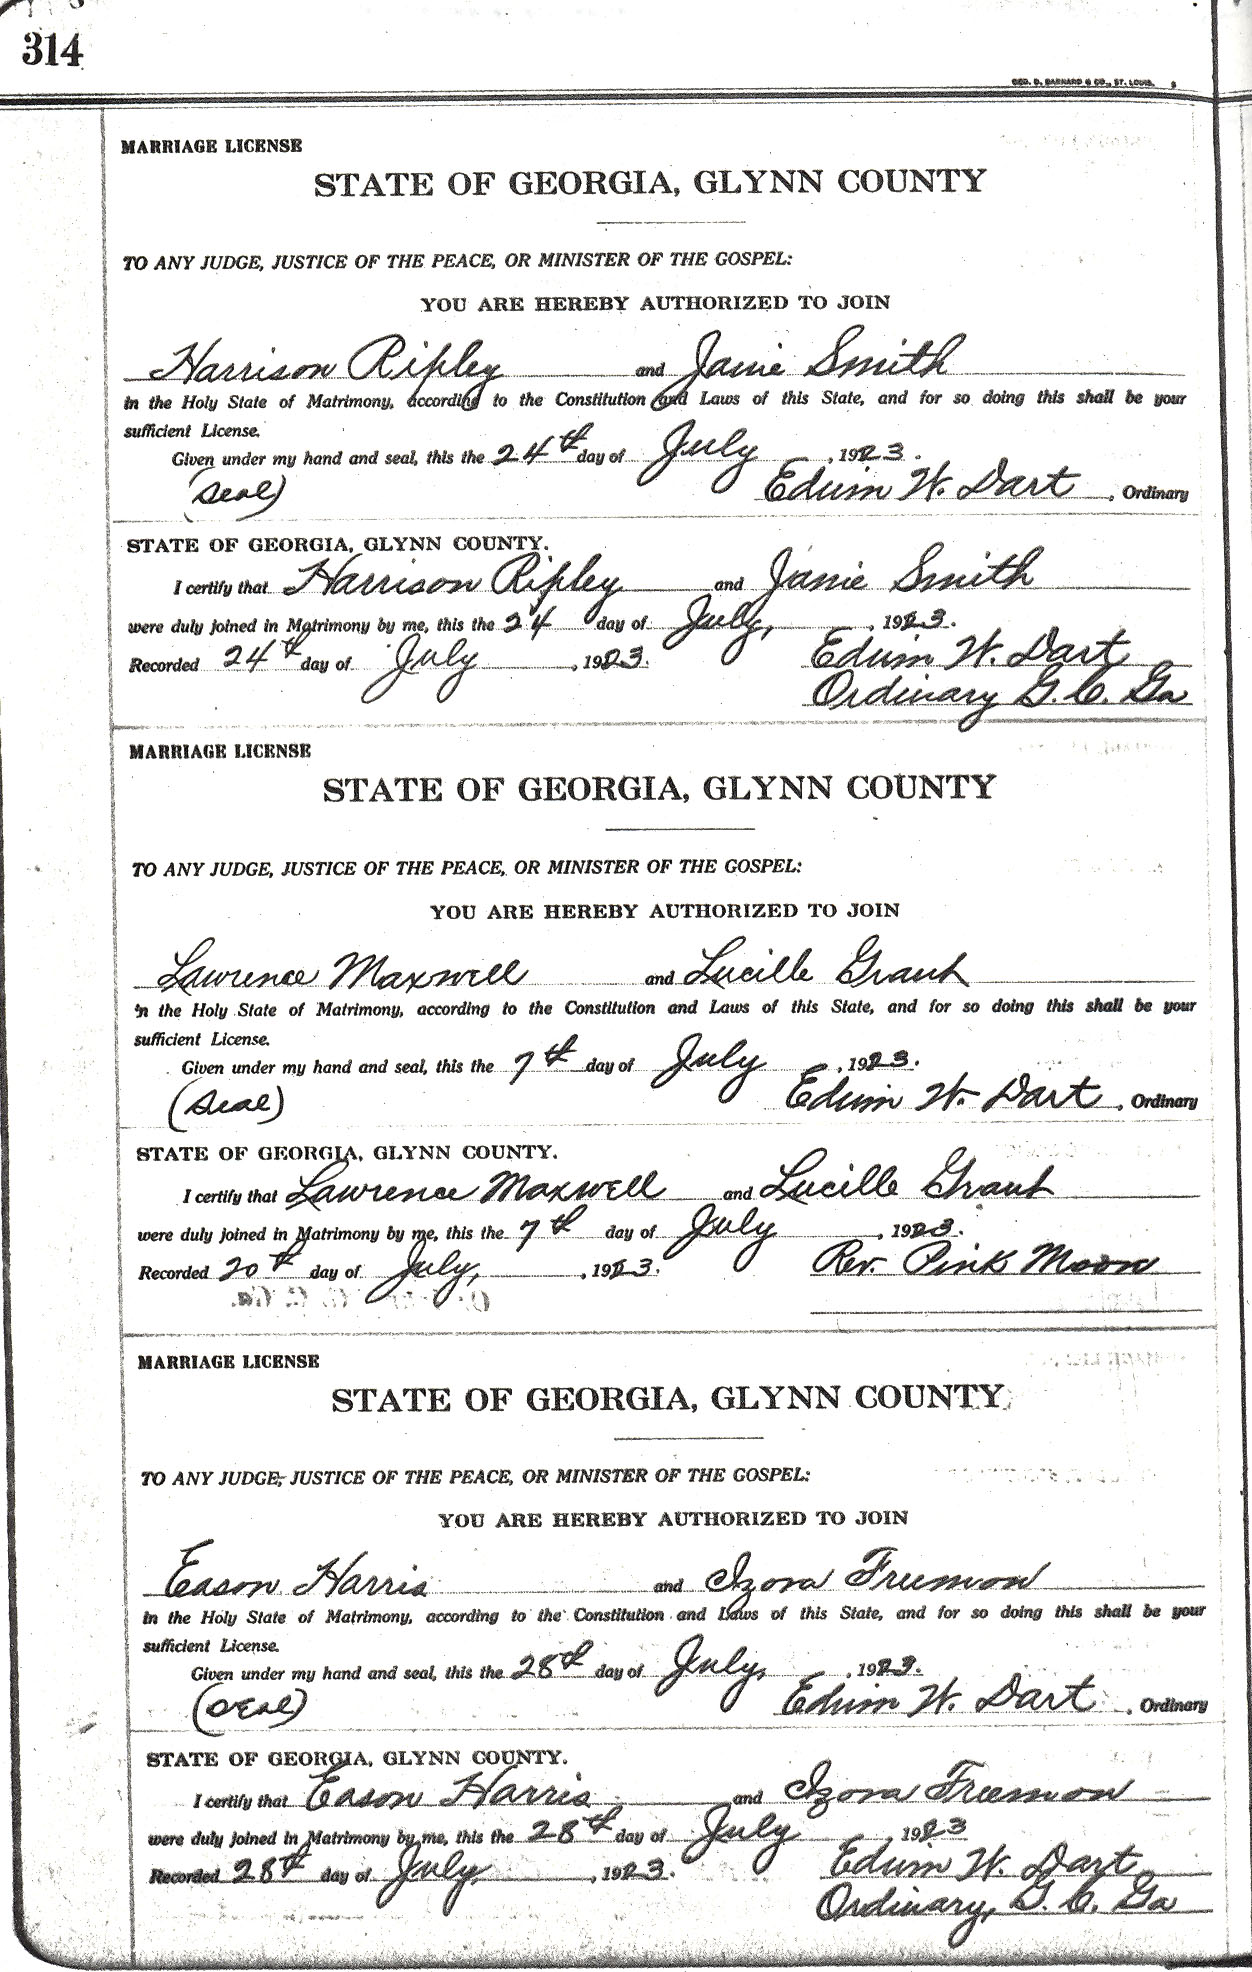 314
GEO. D. BARNARD & CO., ST. LOUIS.
MARRIAGE LICENSE
STATE OF GEORGIA, GLYNN COUNTY
TO ANY JUDGE, JUSTICE OF THE PEACE, OR MINISTER OF THE GOSPEL:
YOU ARE HEREBY AUTHORIZED TO JOIN
Harrison Ripley and Janie Smith
in the Holy State of Matrimony, according to the Constitution and Laws of this State, and for so doing this shall be your
sufficient License.
Given under my hand and seal, this the 24th day of July, 1923.
(Seal) Edwin W. Dart, Ordinary
STATE OF GEORGIA, GLYNN COUNTY.
I certify that Harrison Ripley and Janie Smith
were duly joined in Matrimony by me, this the 24 day of July, 1923.
Recorded 24th day of July, 1923. Edwin W. Dart
Ordinary G. C. Ga
MARRIAGE LICENSE
STATE OF GEORGIA, GLYNN COUNTY
TO ANY JUDGE, JUSTICE OF THE PEACE, OR MINISTER OF THE GOSPEL:
YOU ARE HEREBY AUTHORIZED TO JOIN
Lawrence Maxwell and Lucille Grant
in the Holy State of Matrimony, according to the Constitution and Laws of this State, and for so doing this shall be your
sufficient License.
Given under my hand and seal, this the 7th day of July, 1923.
(Seal) Edwin W. Dart, Ordinary
STATE OF GEORGIA, GLYNN COUNTY.
I certify that Lawrence Maxwell and Lucille Grant
were duly joined in Matrimony by me, this the 7th day of July, 1923.
Recorded 20th day of July, 1923. Rev. Pink Moon
MARRIAGE LICENSE
STATE OF GEORGIA, GLYNN COUNTY
TO ANY JUDGE, JUSTICE OF THE PEACE, OR MINISTER OF THE GOSPEL:
YOU ARE HEREBY AUTHORIZED TO JOIN
Eason Harris and Izora Freemon
in the Holy State of Matrimony, according to the Constitution and Laws of this State, and for so doing this shall be your
sufficient License.
Given under my hand and seal, this the 28th day of July, 1923.
(Seal) Edwin W. Dart, Ordinary
STATE OF GEORGIA, GLYNN COUNTY.
I certify that Eason Harris and Izora Freemon
were duly joined in Matrimony by me, this the 28th day of July, 1923
Recorded 28th day of July, 1923. Edwin W. Dart
Ordinary, G. C. Ga